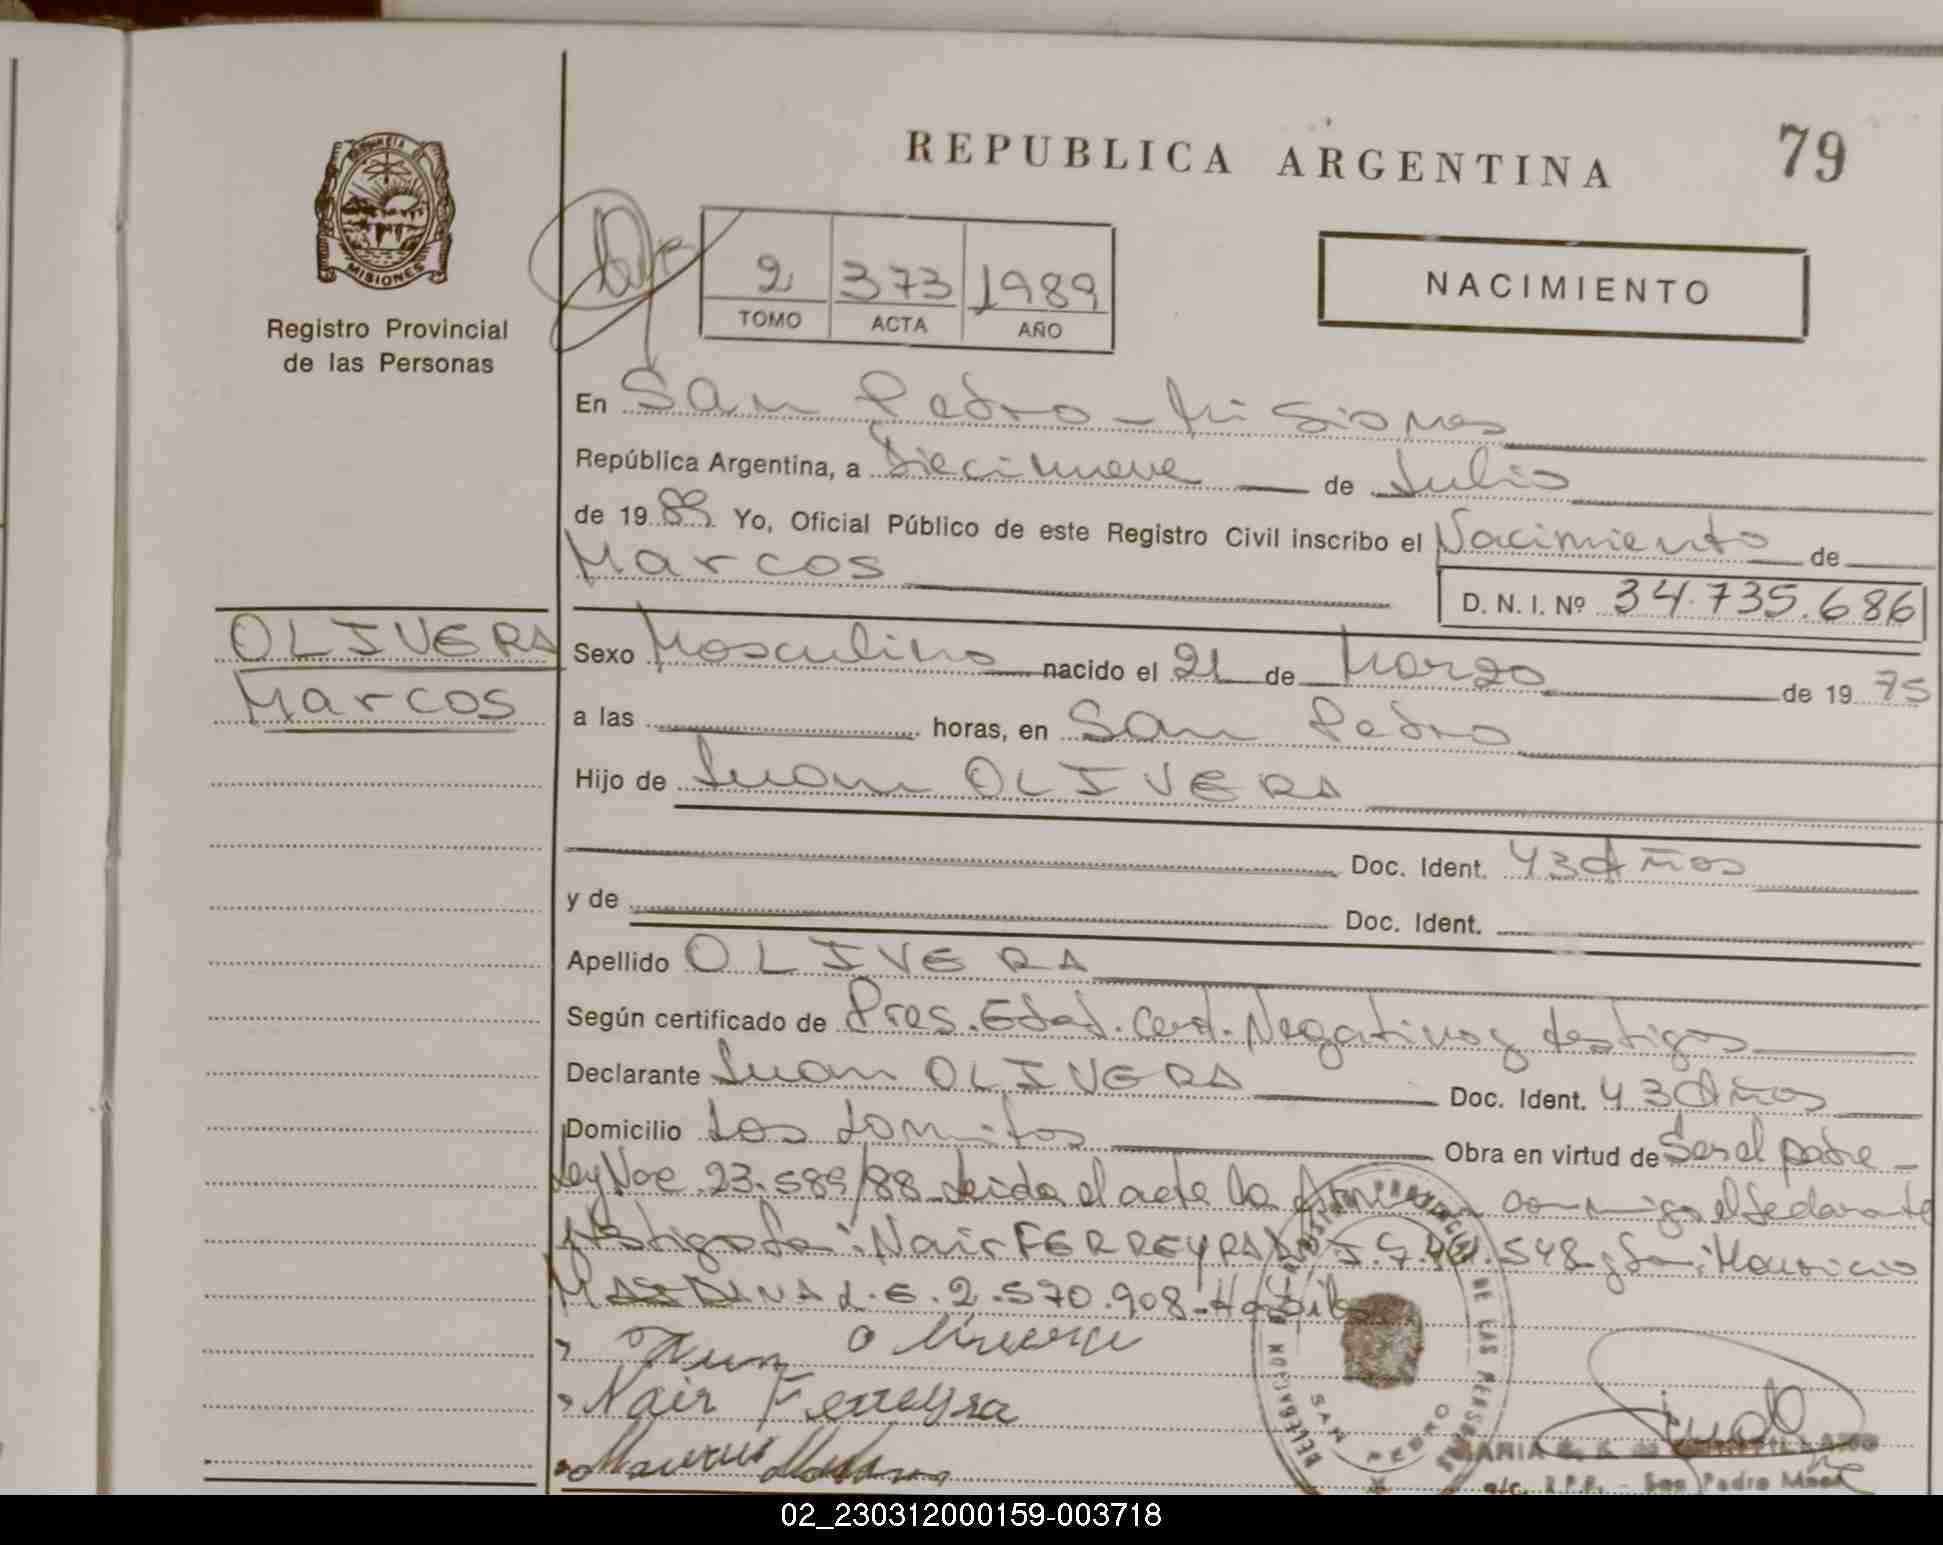 REPUBLICA ARGENTINA
79
PROVINCIA DE
MISIONES
Registro Provincial
de las Personas
2 373 1989
TOMO ACTA AÑO
NACIMIENTO
En San Pedro - Misiones
República Argentina, a Diecinueve de Julio
de 1989 Yo, Oficial Público de este Registro Civil inscribo el Nacimiento de
Marcos
D. N. I. Nº 34.735.686
OLIVERA
Marcos
Sexo Masculino nacido el 21 de Marzo de 1975
a las horas, en San Pedro
Hijo de Juan OLIVERA
Doc. Ident. 43 Años
y de Doc. Ident.
Apellido OLIVERA
Según certificado de Pres. Edad. Cert. Negativo y testigos
Declarante Juan OLIVERA Doc. Ident. 43 Años
Domicilio Los tomitos Obra en virtud de Ser el padre -
Ley Nac. 23.589/88 Leida el acta la firman conmigo el declarante
y testigos Sra: Nair FERREYRA 548 y Sr: Mauricio
L.E. 2.570.908 - Habil
Juan Olivera
Nair Ferreyra
DELEGACION SAN PEDRO
DE LAS PERSONAS
MARIA
a/c. R.P.P. - San Pedro Mnes
02_230312000159-003718